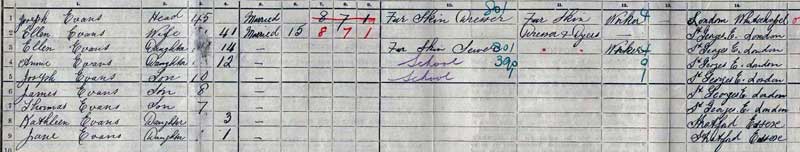 1. 2. 3. 4. 5. 6. 7. 8. 9. 10. 11. 12. 13. 14.
1 Joseph Evans Head 45 Married 8 7 1 Fur Skin Dresser 801 Fur Skin Worker 4 London Whitechapel
2 Ellen Evans Wife 41 Married 15 8 7 1 Dresser & Dyers St Georges E. London
3 Ellen Evans Daughter 14 — Fur Skin Sewer 801 " " Worker 4 St Georges E. London
4 Annie Evans Daughter 12 — School 390 9 St Georges E. London
5 Joseph Evans Son 10 — School 1 St Georges E. London
6 James Evans Son 8 — St Georges E. London
7 Thomas Evans Son 7 — St Georges E. London
8 Kathleen Evans Daughter 3 — Stratford Essex
9 Jane Evans Daughter 1 — Stratford Essex
10